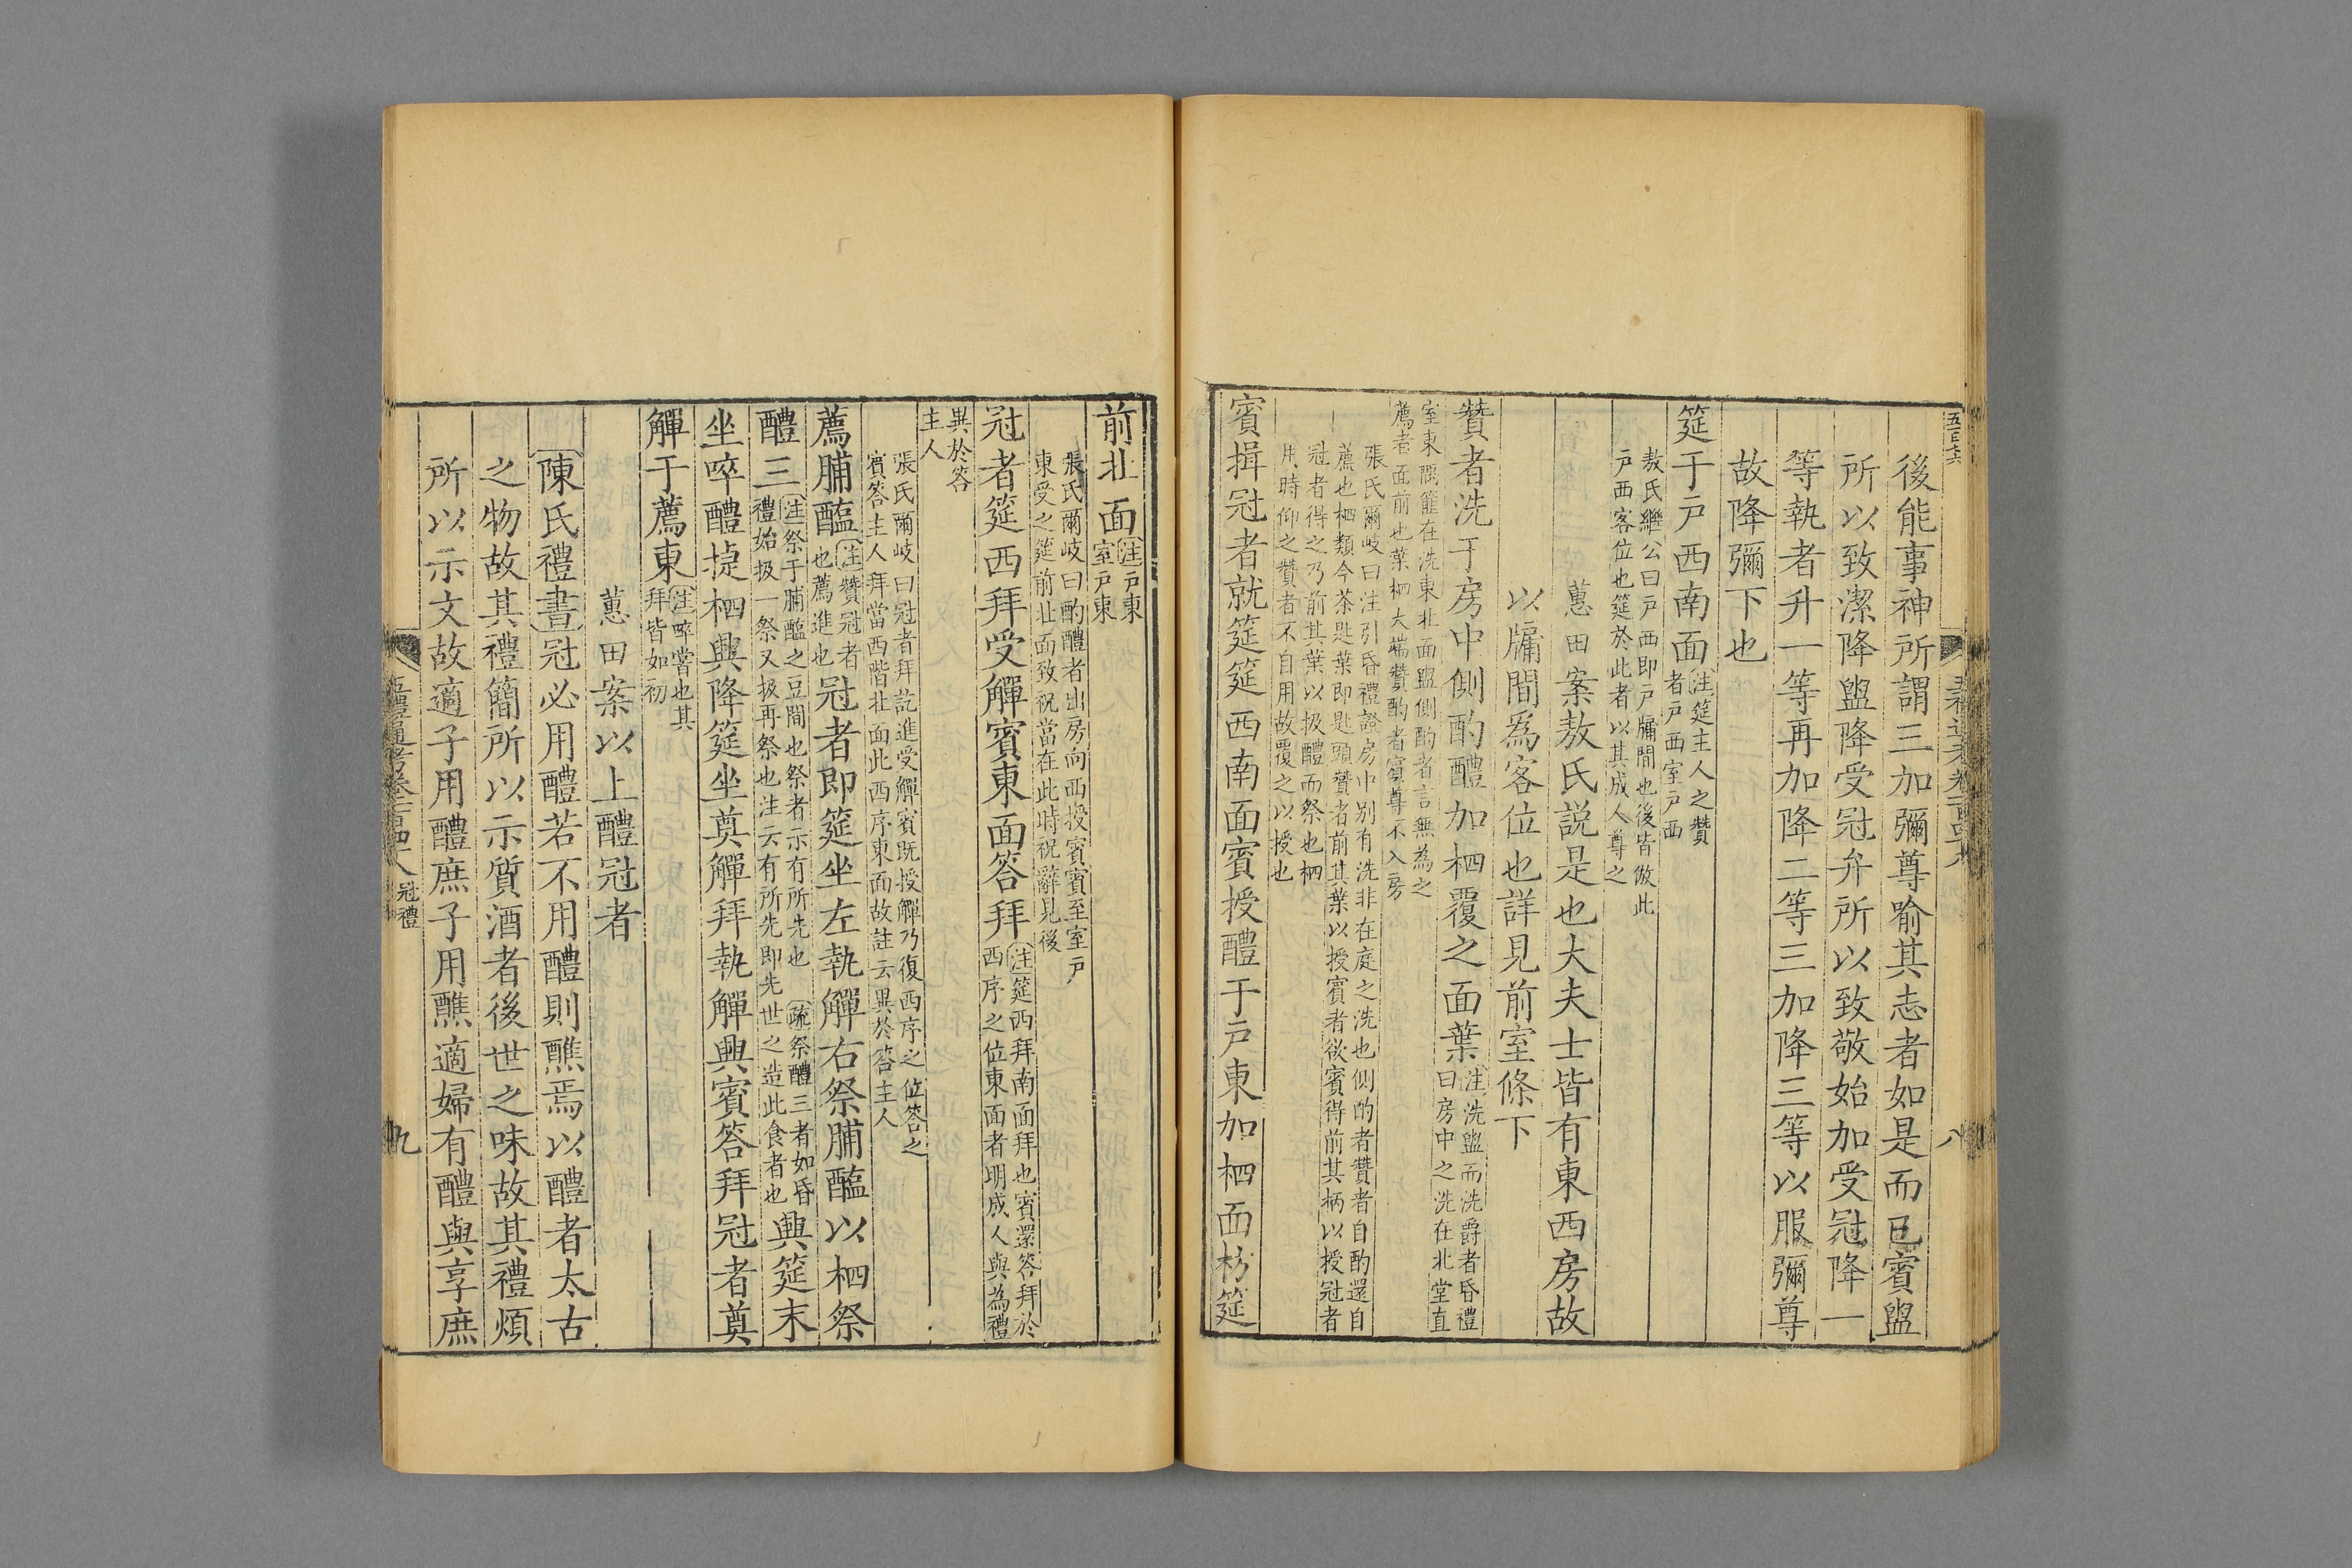 後能事神所謂三加彌尊喻其志者如是而已賓盥
所以致潔降盥降受冠弁所以致敬始加受冠降一
等執者升一等再加降二等三加降三等以服彌尊
故降彌下也
筵于戶西南面
注筵主人之贊
者戶西室戶西
敖氏繼公曰戶西即戶牖間也後皆倣此
戶西客位也筵於此者以其成人尊之
蕙田案敖氏説是也大夫士皆有東西房故
以牖間爲客位也詳見前室條下
贊者洗于房中側酌醴加柶覆之面葉
注洗盥而洗爵者昏禮
曰房中之洗在北堂直
室東隅篚在洗東北面盥側酌者言無為之
薦者面前也葉柶大端贊酌者賓尊不入房
張氏爾岐曰注引昏禮證房中别有洗非在庭之洗也側酌者贊者自酌還自
薦也柶類今茶匙葉即匙頭贊者前其葉以授賓者欲賓得前其柄以授冠者
冠者得之乃前其葉以扱醴而祭也柶
用時仰之贊者不自用故覆之以授也
賓揖冠者就筵筵西南面賓授醴于戶東加柶面枋筵
前北面
注戶東
室戶東
張氏爾岐曰酌醴者出房向西授賓賓至室戶
東受之筵前北面致祝當在此時祝辭見後
冠者筵西拜受觶賓東面答拜
注筵西拜南面拜也賓還答拜於
西序之位東面者明成人與為禮
異於答
主人
張氏爾岐曰冠者拜訖進受觶賓既授觶乃復西序之位答之
賓答主人拜當西階北面此西序東面故註云異於答主人
薦脯醢
注贊冠者
也薦進也
冠者即筵坐左執觶右祭脯醢以柶祭
醴三
注祭于脯醢之豆間也祭者示有所先也 疏祭醴三者如昏
禮始扱一祭又扱再祭也注云有所先即先世之造此食者也
興筵末
坐啐醴捷柶興降筵坐奠觶拜執觶興賓答拜冠者奠
觶于薦東
注啐嘗也其
拜皆如初
蕙田案以上醴冠者
陳氏禮書冠必用醴若不用醴則醮焉以醴者太古
之物故其禮簡所以示質酒者後世之味故其禮煩
所以示文故適子用醴庶子用醮適婦有醴與享庶
五禮通考卷一百四十八 冠禮
九